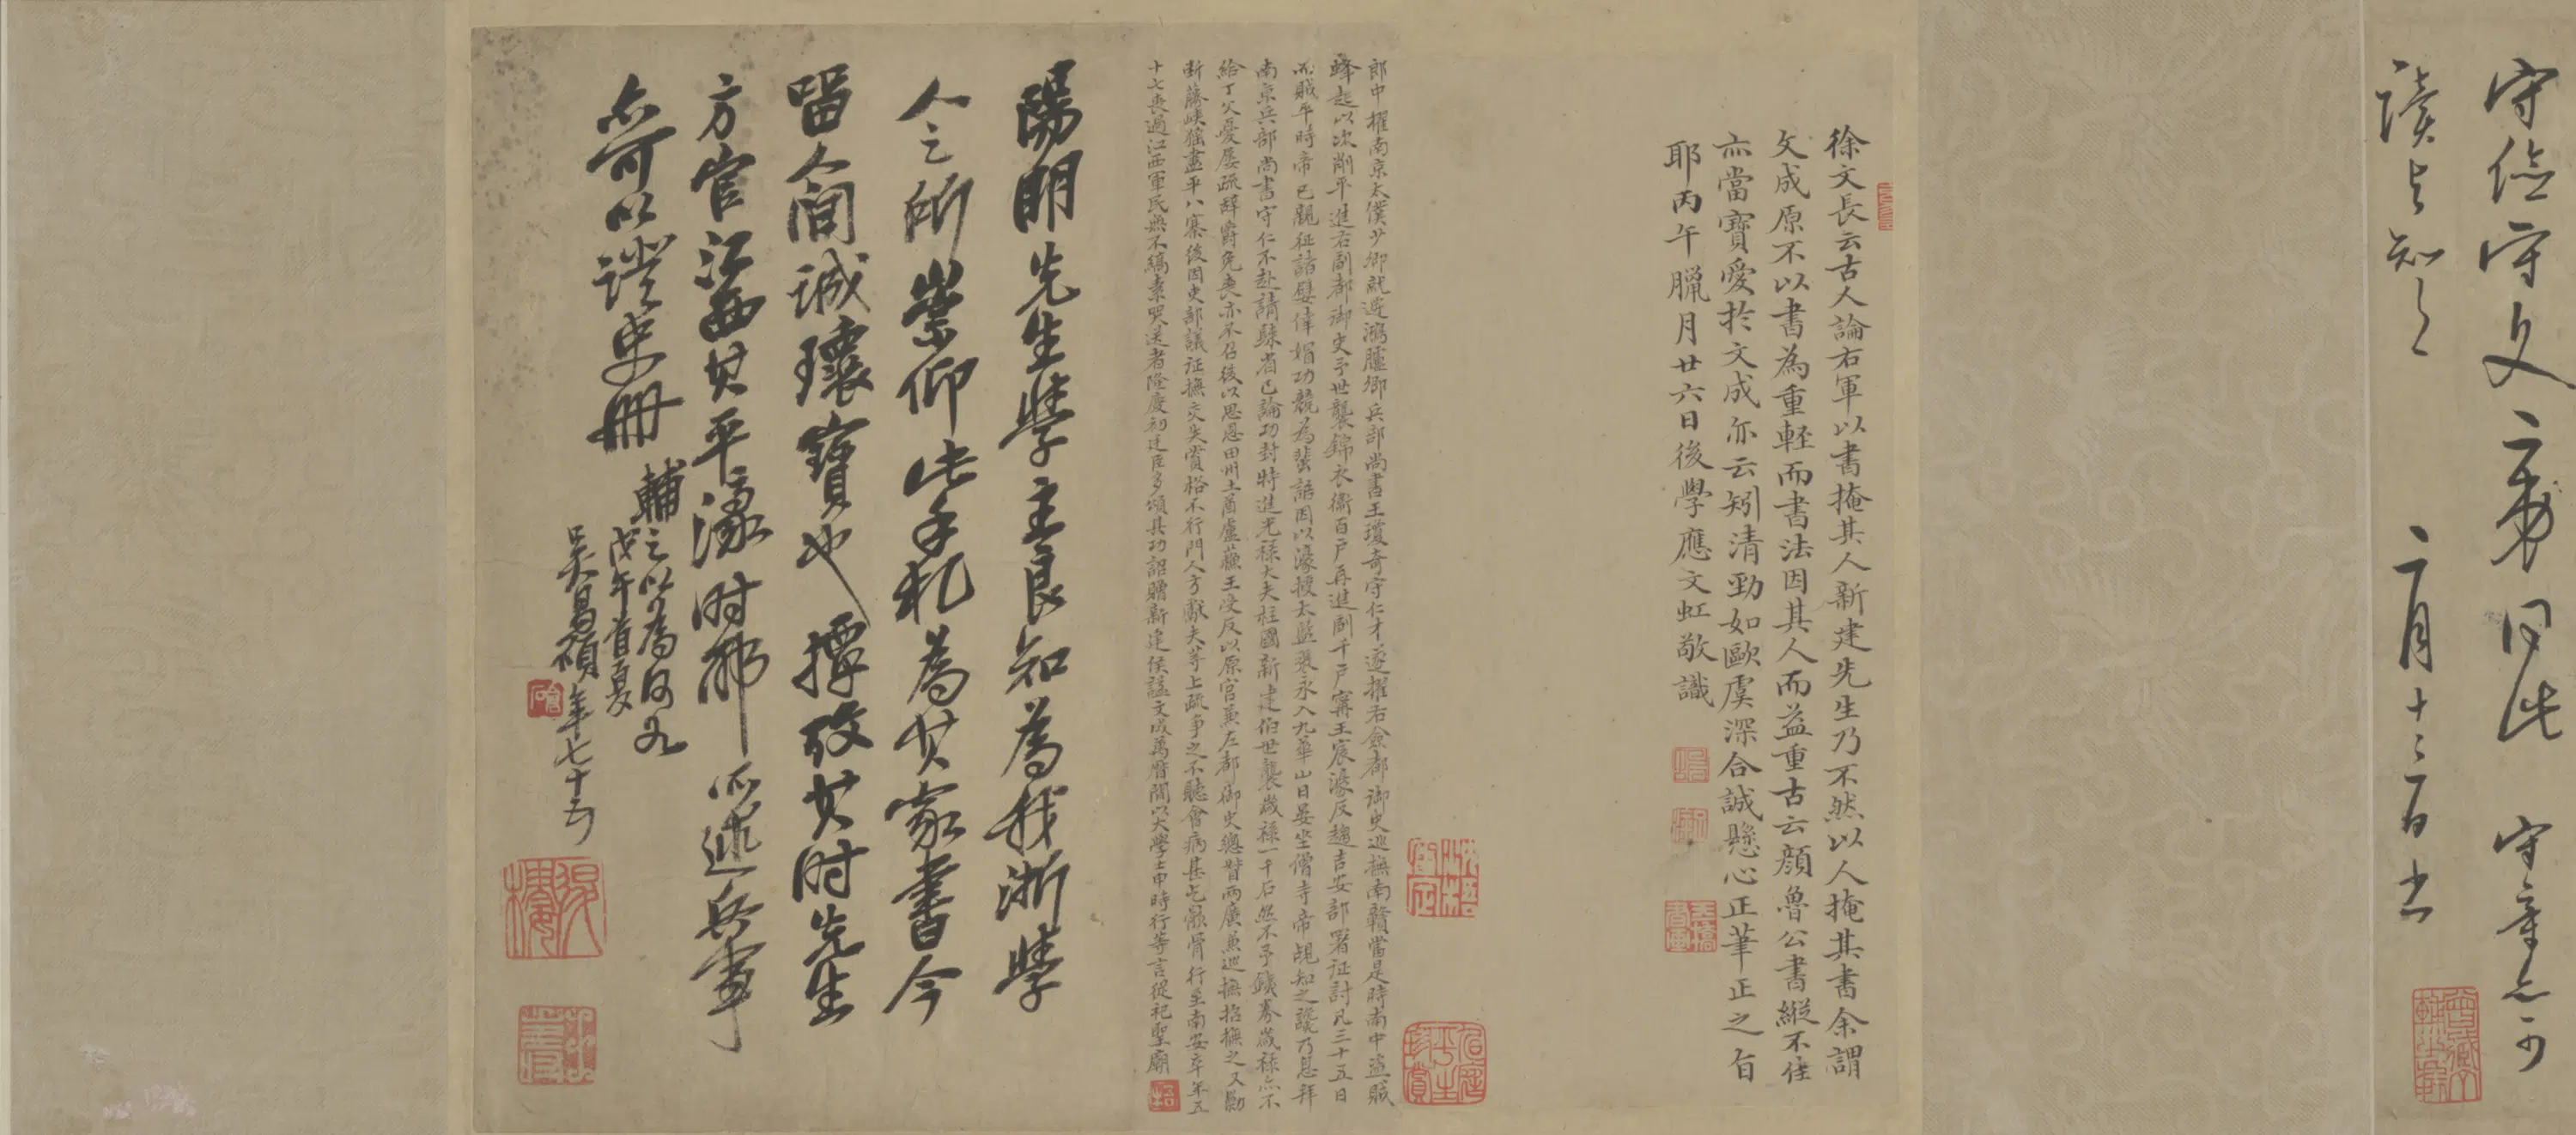 守俭守文二弟同此 守章亦可
讀與知之
二月十三日書
徐文長云古人論右軍以書掩其人新建先生乃不然以人掩其書余謂
文成原不以書為重輕而書法因其人而益重古云顏魯公書縱不佳
亦當寶愛於文成亦云矧清勁如歐虞深合誠懸心正筆正之旨
耶丙午臘月廿六日後學應文虹敬識
郎中擢南京太僕少卿就遷鴻臚卿兵部尚書王瓊奇守仁才遂擢右僉都御史巡撫南贛當是時南中盜賊
蜂起以次削平進右副都御史予世襲錦衣衛百戶再進副千戶寧王宸濠反趨吉安部署征討凡三十五日
而賊平時帝已親征諸嬖倖媢功競為蜚語因以濠授太監張永入九華山日晏坐僧寺帝覘知之讒乃息拜
南京兵部尚書守仁不赴請歸省已論功封特進光祿大夫柱國新建伯世襲歲祿一千石然不予鐵券歲祿亦不
給丁父憂屢疏辭爵免喪亦不召後以思恩田州土酋盧蘇王受反以原官兼左都御史總督兩廣兼巡撫招撫之又勦
斷藤峽猺盡平八寨後因吏部議征撫交失賞格不行門人方獻夫等上疏爭之不聽會病甚乞骸骨行至南安卒年五
十七喪過江西軍民無不縞素哭送者隆慶初廷臣多頌其功詔贈新建侯諡文成萬曆間以大學士申時行等言從祀聖廟
陽明先生學主良知為我浙學
人之所崇仰此手札為其家書今
留人間誠瓌寶也攷其時先生
方官江西其平濠時耶所述兵事
亦可以證史冊
輔之以為何如
戊午首夏
吳昌碩年七十五